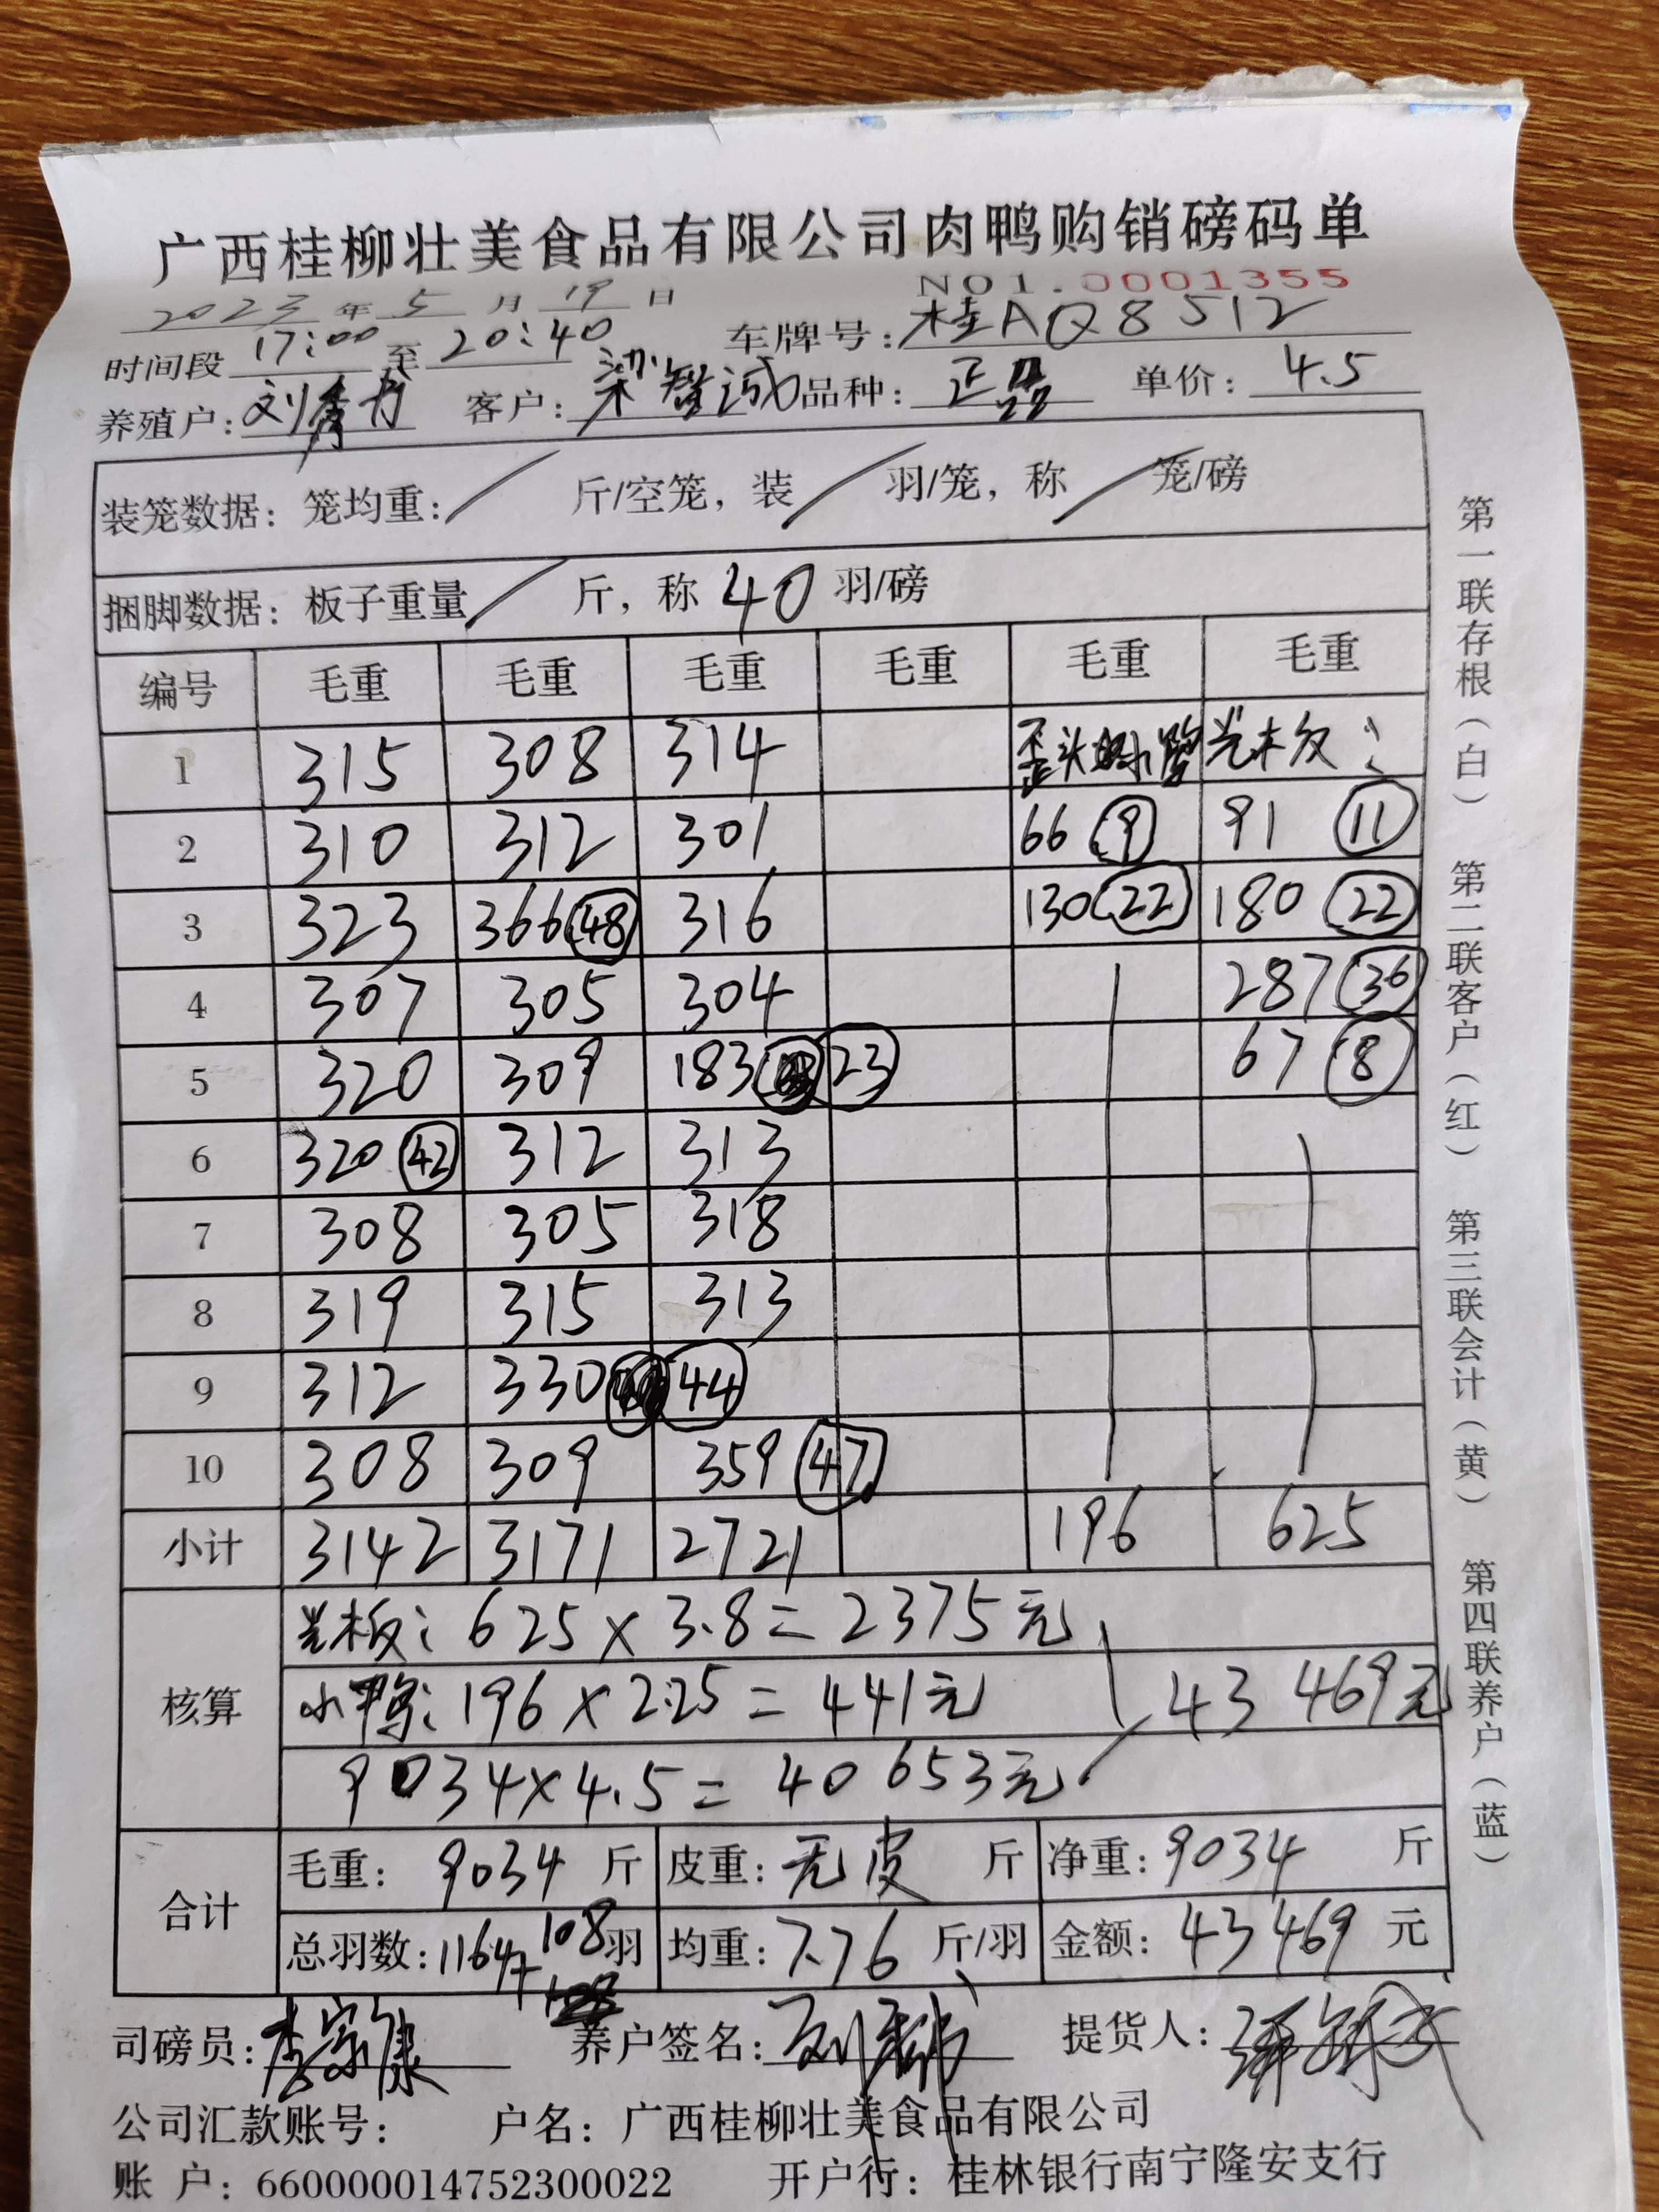 广西桂柳壮美食品有限公司肉鸭购销磅码单
NO1.0001355
2023年5月19日
时间段 17:00 至 20:40 车牌号: 桂AQ8512
养殖户: 刘秀丹 客户: 梁智诚 品种: 正品 单价: 4.5
装笼数据: 笼均重: / 斤/空笼, 装 / 羽/笼, 称 / 笼/磅
捆脚数据: 板子重量 / 斤, 称 40 羽/磅
编号 毛重 毛重 毛重 毛重 毛重 毛重
1 315 308 314 歪头 光板:
2 310 312 301 66 9 91 11
3 323 366 48 316 130 22 180 22
4 307 305 304 287 36
5 320 309 183 23 67 8
6 320 42 312 313
7 308 305 318
8 319 315 313
9 312 330 44
10 308 309 359 47
小计 3142 3171 2721 196 625
核算
光板: 625 × 3.8 = 2375元
小鸭: 196 × 2.25 = 441元 43469元
9034×4.5 = 40653元
合计
毛重: 9034 斤 皮重: 无皮 斤 净重: 9034 斤
总羽数: 1164+108羽 均重: 7.76 斤/羽 金额: 43469 元
司磅员: 李宗康 养户签名: 提货人:
公司汇款账号: 户名: 广西桂柳壮美食品有限公司
账 户: 660000014752300022 开户行: 桂林银行南宁隆安支行
第一联存根(白) 第二联客户(红) 第三联会计(黄) 第四联养户(蓝)